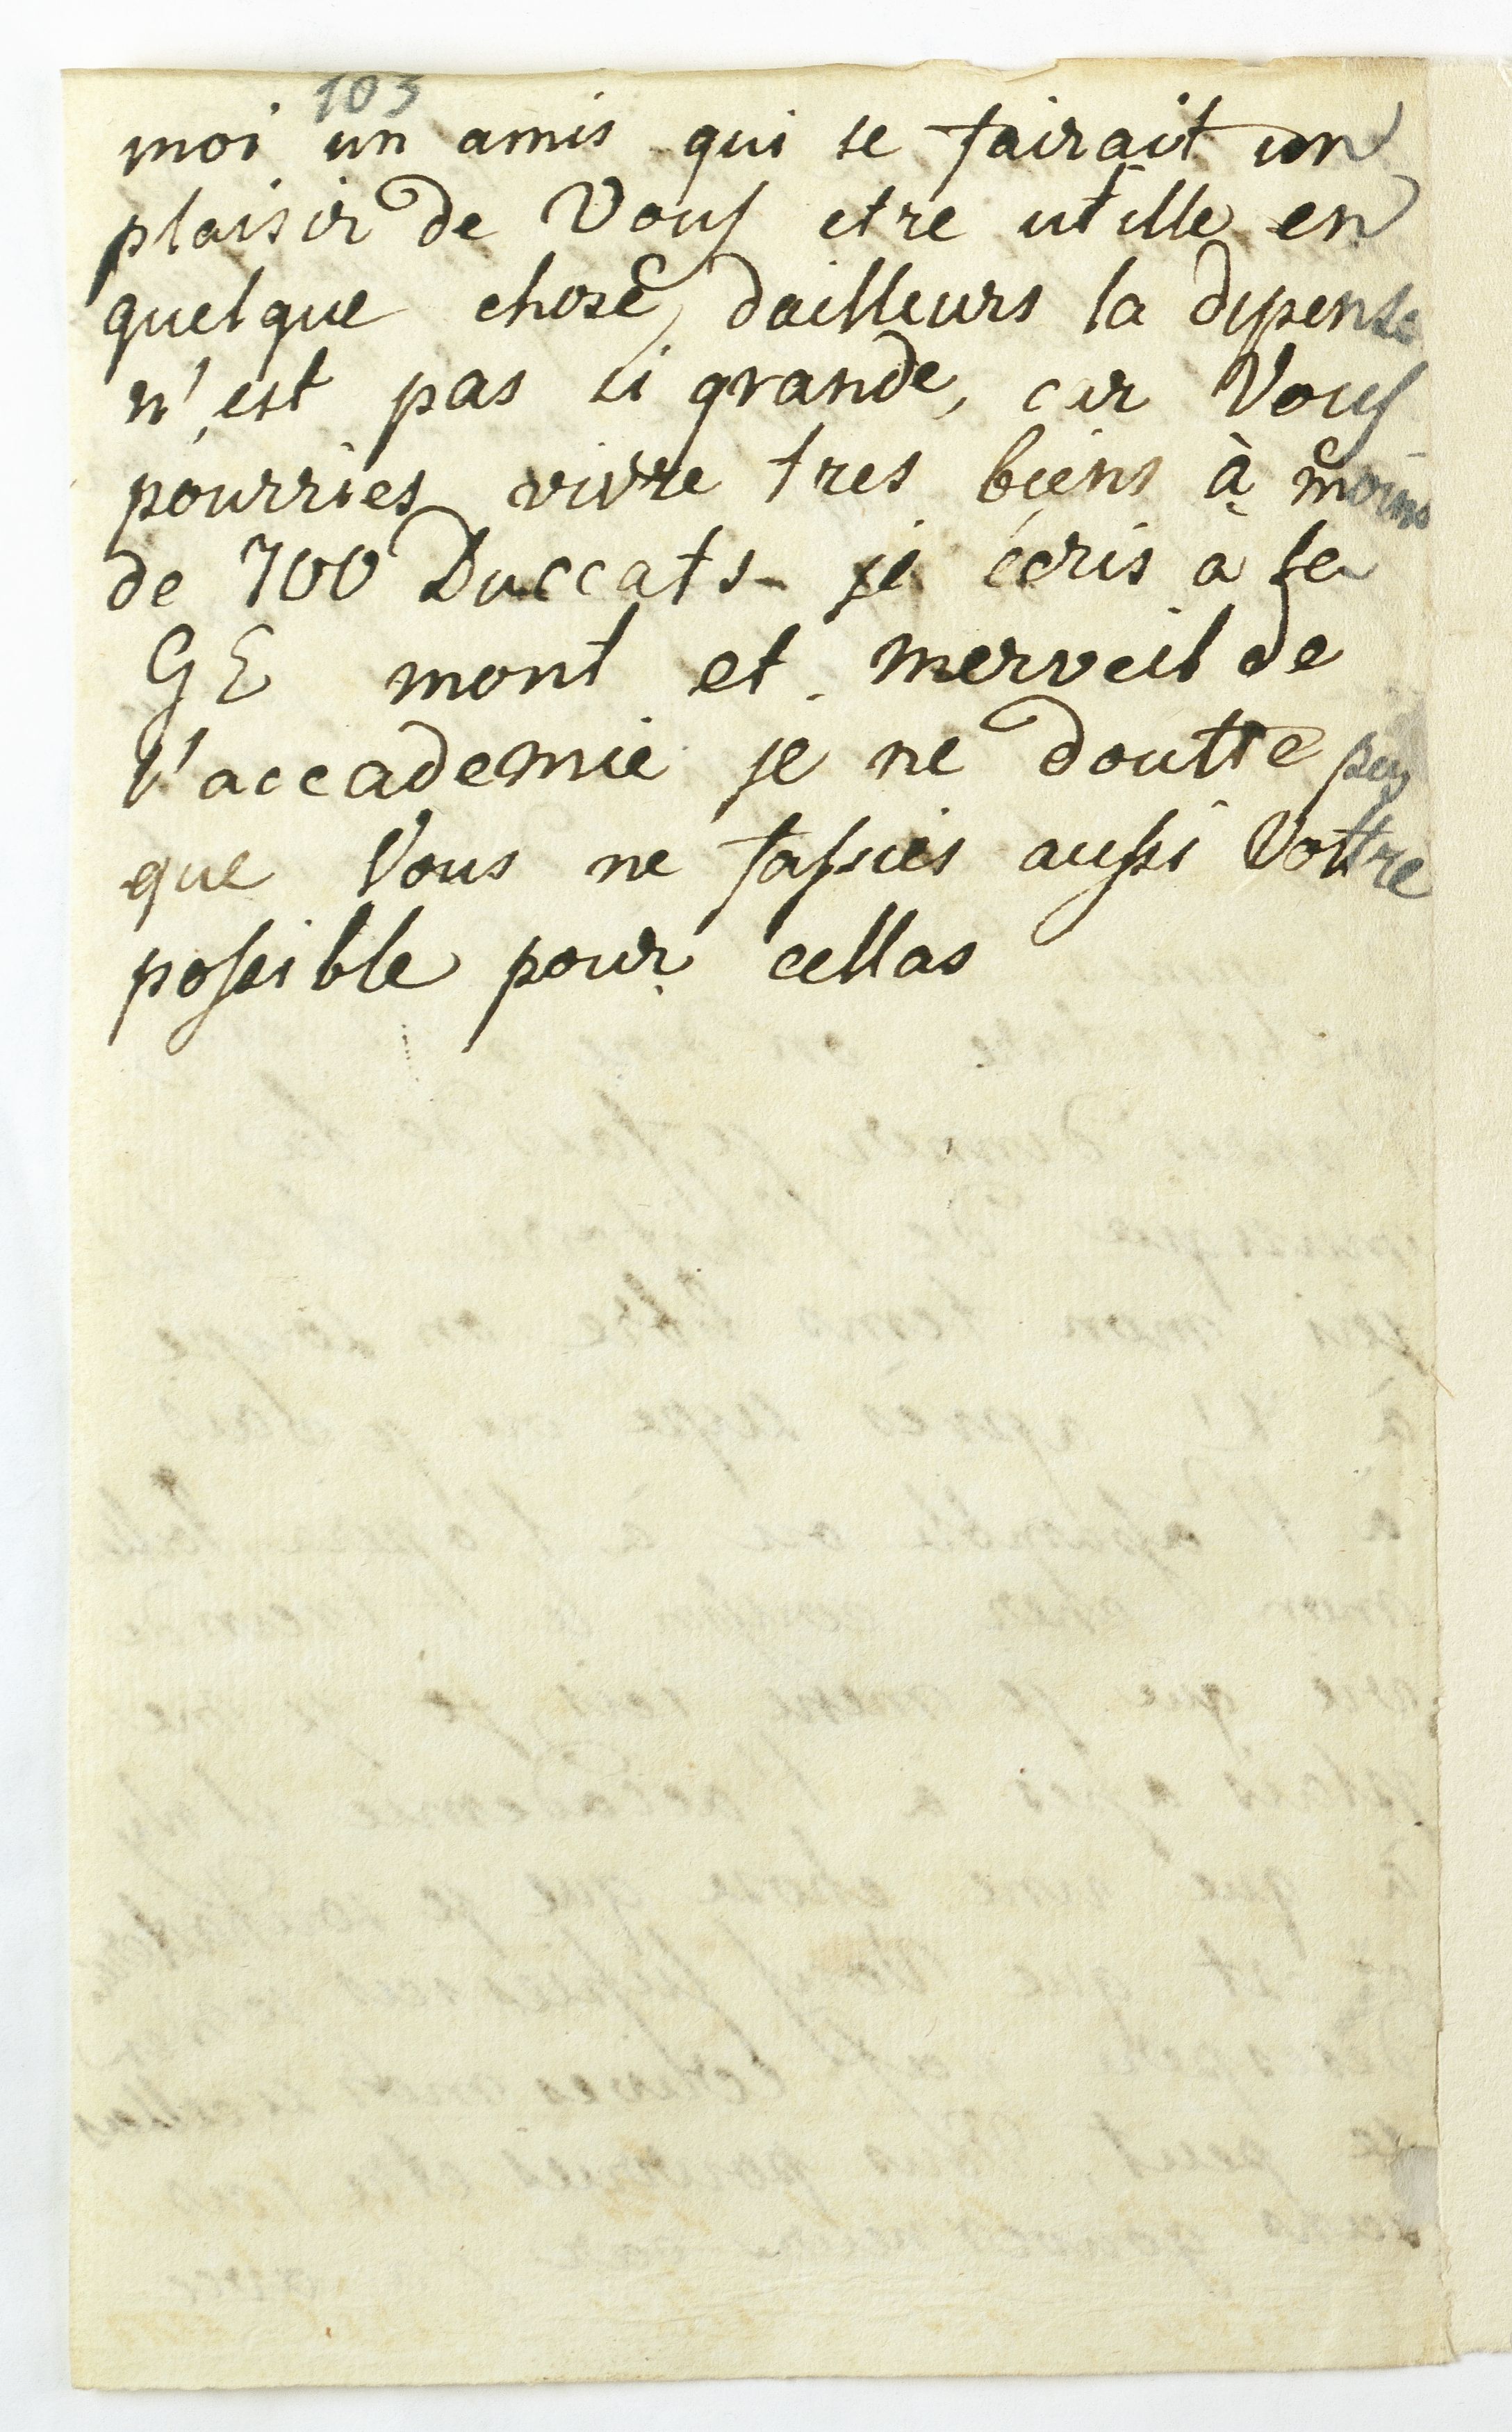 103
moi un amis qui se fairait un
plaisir de Vous etre utille en
quelque chose, dailleurs la depense
n'est pas si grande, car Vous
pourries vivre tres biens à moins
de 700 Duccats je écris a se
GE mont et merveil de
l'accademie je ne doutte pas
que Vous ne fassies aussi Vottre
possible pour cellas